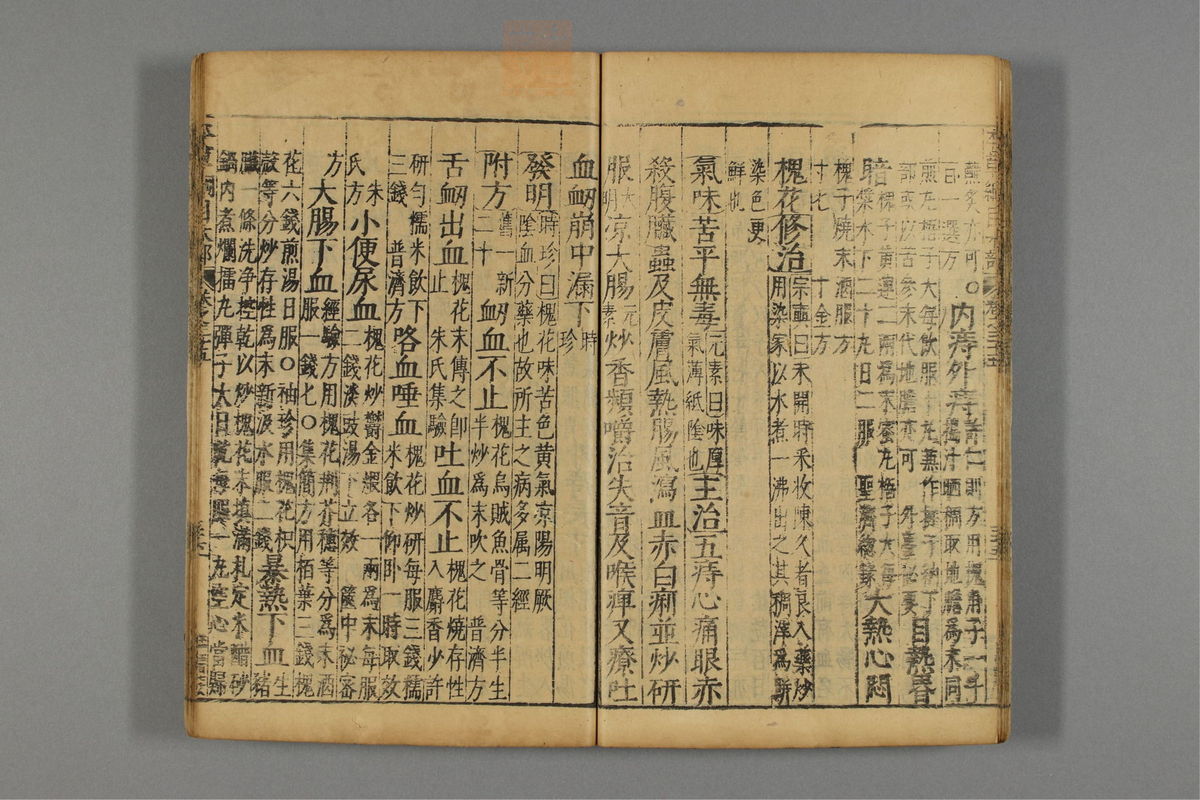 蘸炙亦可○内痔外痔許仁則方用槐角子一斗
煎丸梧子大每飲服十丸兼作挺子納下
部或以苦參末代地膽亦可
槐子黄連二兩為末蜜丸梧子大每
漿水下二十丸日二服 聖濟總録 大熱心悶
槐子燒末酒服方
寸匕 千金方
槐花修治宗奭曰未開時采收陳久者良入藥炒
用染家以水煮一沸出之其稠滓為餅
染色更
鮮也
氣味苦平無毒元素曰味厚
氣薄純陰也主治五痔心痛眼赤
殺腹臟蟲及皮膚風熱腸風瀉血赤白痢並炒研
服大明凉大腸元素炒香頻嚼治失音及喉痺又療吐
血衂崩中漏下時珍
發明時珍曰槐花味苦色黄氣凉陽明厥
陰血分藥也故所主之病多属二經
附方舊一新二十衂血不止槐花烏賊魚骨等分半生
半炒為末吹之 普濟方
舌衂出血槐花末傅之即
止 朱氏集驗 吐血不止槐花燒存性
入麝香少許
研勻糯米飲下
三錢 普濟方 咯血唾血槐花炒研每服三錢糯
米飲下仰卧一時取效
朱氏方 小便尿血槐花炒鬱金煨各一兩為末每服
二錢淡豉湯下立效 篋中秘寶
方 大腸下血經驗方用槐花荆芥穗等分為末酒
服一錢匕○集簡方用栢葉三錢槐
花六錢煎湯日服○袖珍用槐花枳
殻等分炒存性為末新汲水服二錢 暴熱下血生猪
臟一條洗净控乾以炒槐花末填滿扎定米醋砂
鍋内煮爛擂丸彈子大日乾每服一丸空心當歸